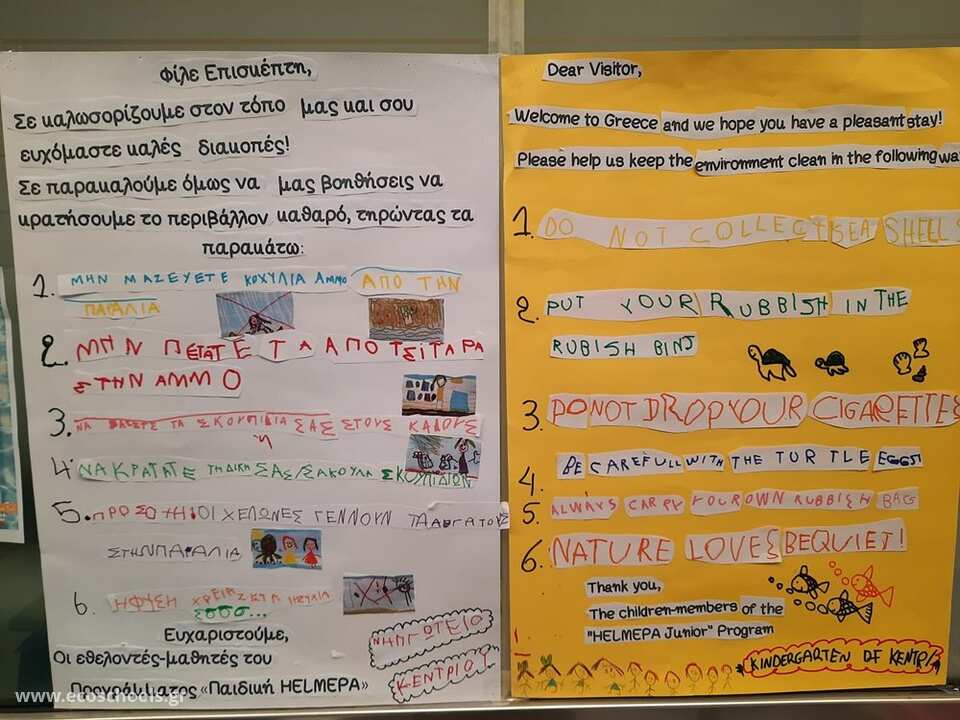 Φίλε Επισκέπτη,
Σε καλωσορίζουμε στον τόπο μας και σου
ευχόμαστε καλές διακοπές!
Σε παρακαλούμε όμως να μας βοηθήσεις να
κρατήσουμε το περιβάλλον καθαρό, τηρώντας τα
παρακάτω:
1. ΜΗΝ ΜΑΖΕΥΕΤΕ ΚΟΧΥΛΙΑ ΑΜΜΟ ΑΠΟ ΤΗΝ
ΠΑΡΑΛΙΑ
2. ΜΗΝ ΠΕΤΑΤΕ ΤΑ ΑΠΟΤΣΙΓΑΡΑ
ΣΤΗΝ ΑΜΜΟ
3. ΝΑ ΒΑΖΕΤΕ ΤΑ ΣΚΟΥΠΙΔΙΑ ΣΑΣ ΣΤΟΥΣ ΚΑΔΟΥΣ
4. ΝΑ ΚΡΑΤΑΤΕ ΤΗ ΔΙΚΗ ΣΑΣ ΣΑΚΟΥΛΑ ΣΚΟΥΠΙΔΙΩΝ
5. ΠΡΟΣΟΤΗ! ΟΙ ΧΕΛΩΝΕΣ ΓΕΝΝΟΥΝ ΤΑ ΑΒΓΑ ΤΟΥΣ
ΣΤΗΝ ΠΑΡΑΛΙΑ
6. Η ΦΥΣΗ
ΣΣΣΣ...
Ευχαριστούμε,
Οι εθελοντές-μαθητές του
Προγράμματος «Παιδική HELMEPA»
ΝΗΠΓΩΤΕΙΟ
ΚΕΝΤΡΙΟΥ
Dear Visitor,
Welcome to Greece and we hope you have a pleasant stay!
Please help us keep the environment clean in the following wa
1. DO NOT COLLECT SEA SHELLS
2. PUT YOUR RUBBISH IN THE
RUBISH BINS
3. DO NOT DROP YOUR CIGARETTES
4. BE CAREFULL WITH THE TURTLE EGGS!
5. ALWAYS CARRY YOUR OWN RUBBISH BAG
6. NATURE LOVES BE QUIET!
Thank you,
The children-members of the
"HELMEPA Junior" Program
KINDERGARTEN OF KENTRI
www.ecoschools.gr